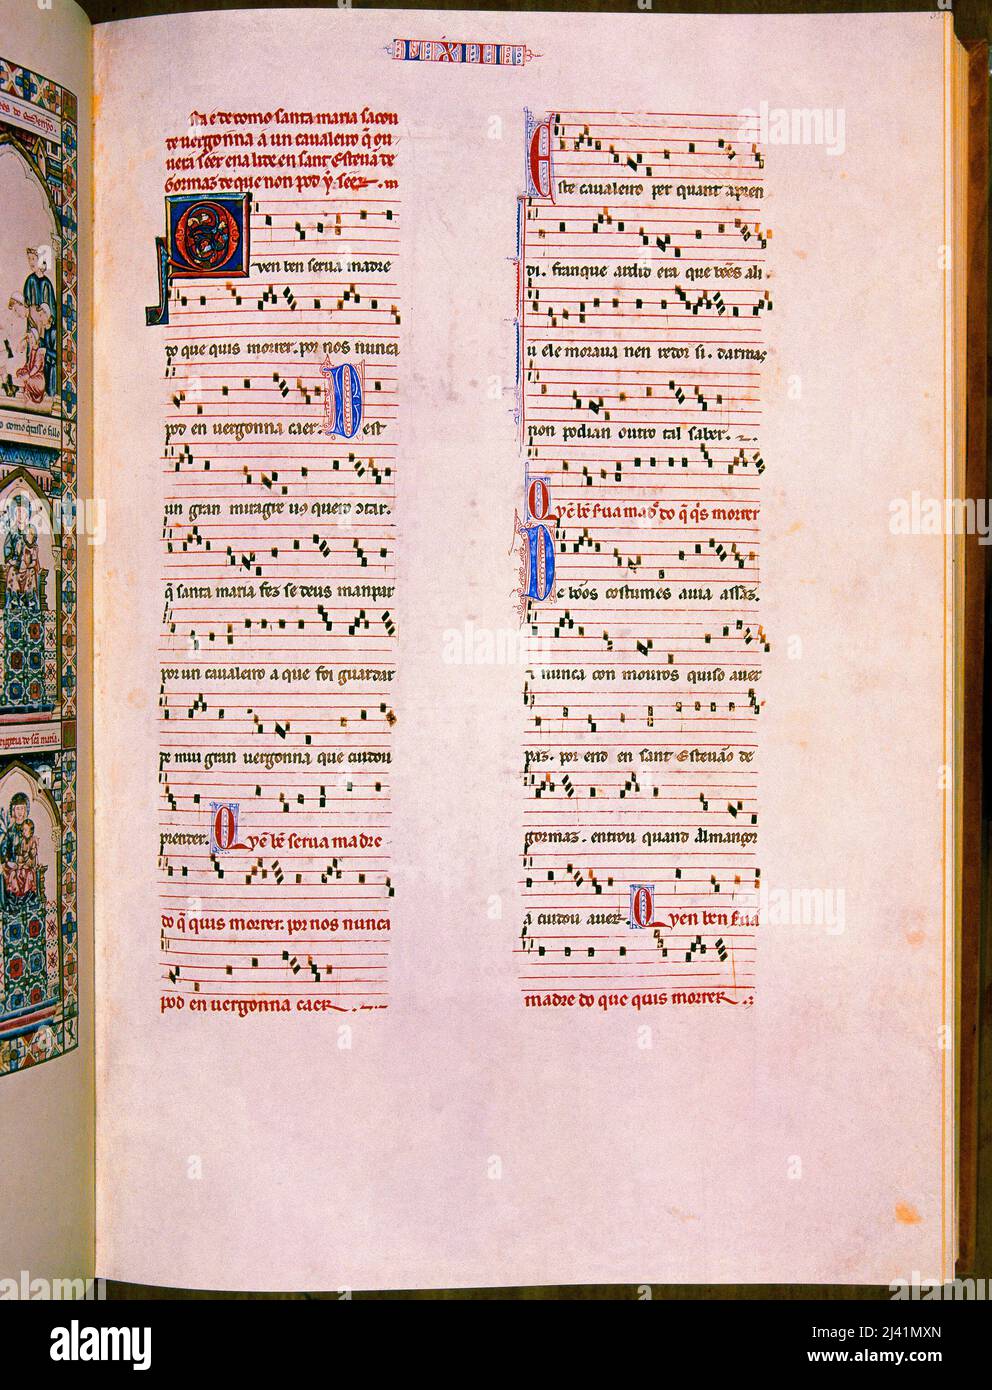 LXIII
Sta é de como santa maria sacou
de vergonna a un cavaleiro q̃ ou-
uera seer ena lide en sant Esteuã de
Gormaz de que non pod y seer. m
Quen ben serua a madre
do que quis morrer. por nos nunca
pod en uergonna caer. Dest
un gran miragre uos quero ↄtar.
q̃ santa maria fez se deus manpar
por un caualeiro a que foi guardar
de mui gran uergonna que cuidou
prender. Quẽ bẽ serua madre
do q̃ quis morrer. por nos nunca
pod en uergonna caer.
Este caualeiro per quant apren
di. franque ardid era que bõés ali
u ele moraua nen redor si. darmas
non podian outro tal saber.
Quẽ bẽ s̃ua mad̃ do q̃ q̃s morrer
De bõos costumes auia assaz.
τ nunca con mouros quiso auer
paz. por end en sant Esteuão de
gormaz. entrou quand Almançor
a cuidou auer. Quen ben s̃ua
madre do que quis morrer
alamy
Image ID: 2J41MXN
www.alamy.com